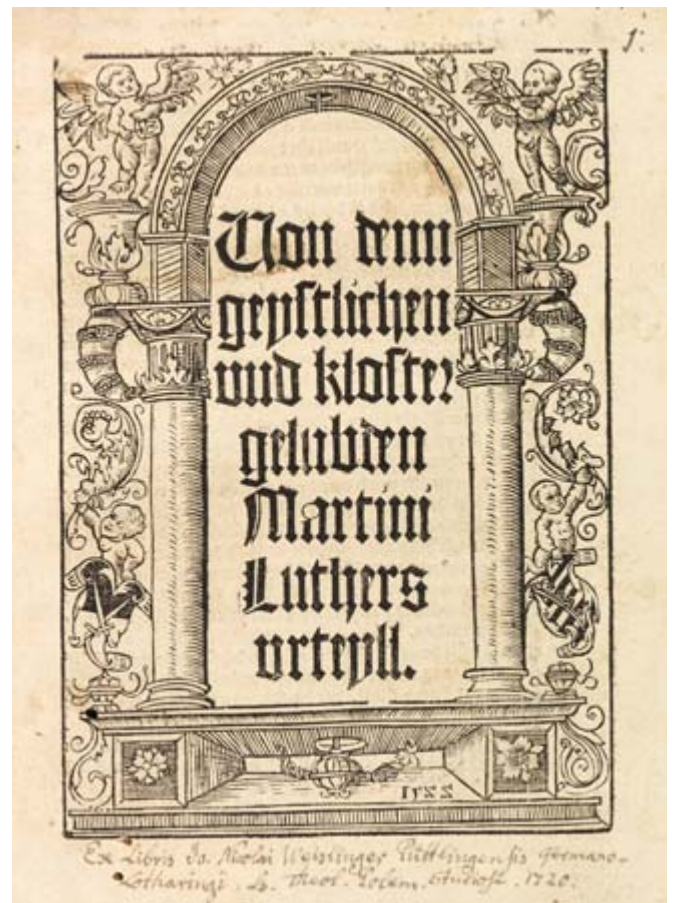 1.
Von denn
geystlichen
vnd kloster
gelubden
Martini
Luthers
vrteyll.
1522
Ex Libris Jo. Nicolai Weislinger Püttlingensis Germano-
Lotharingi. Theol. Polem. Studiosi. 1720.